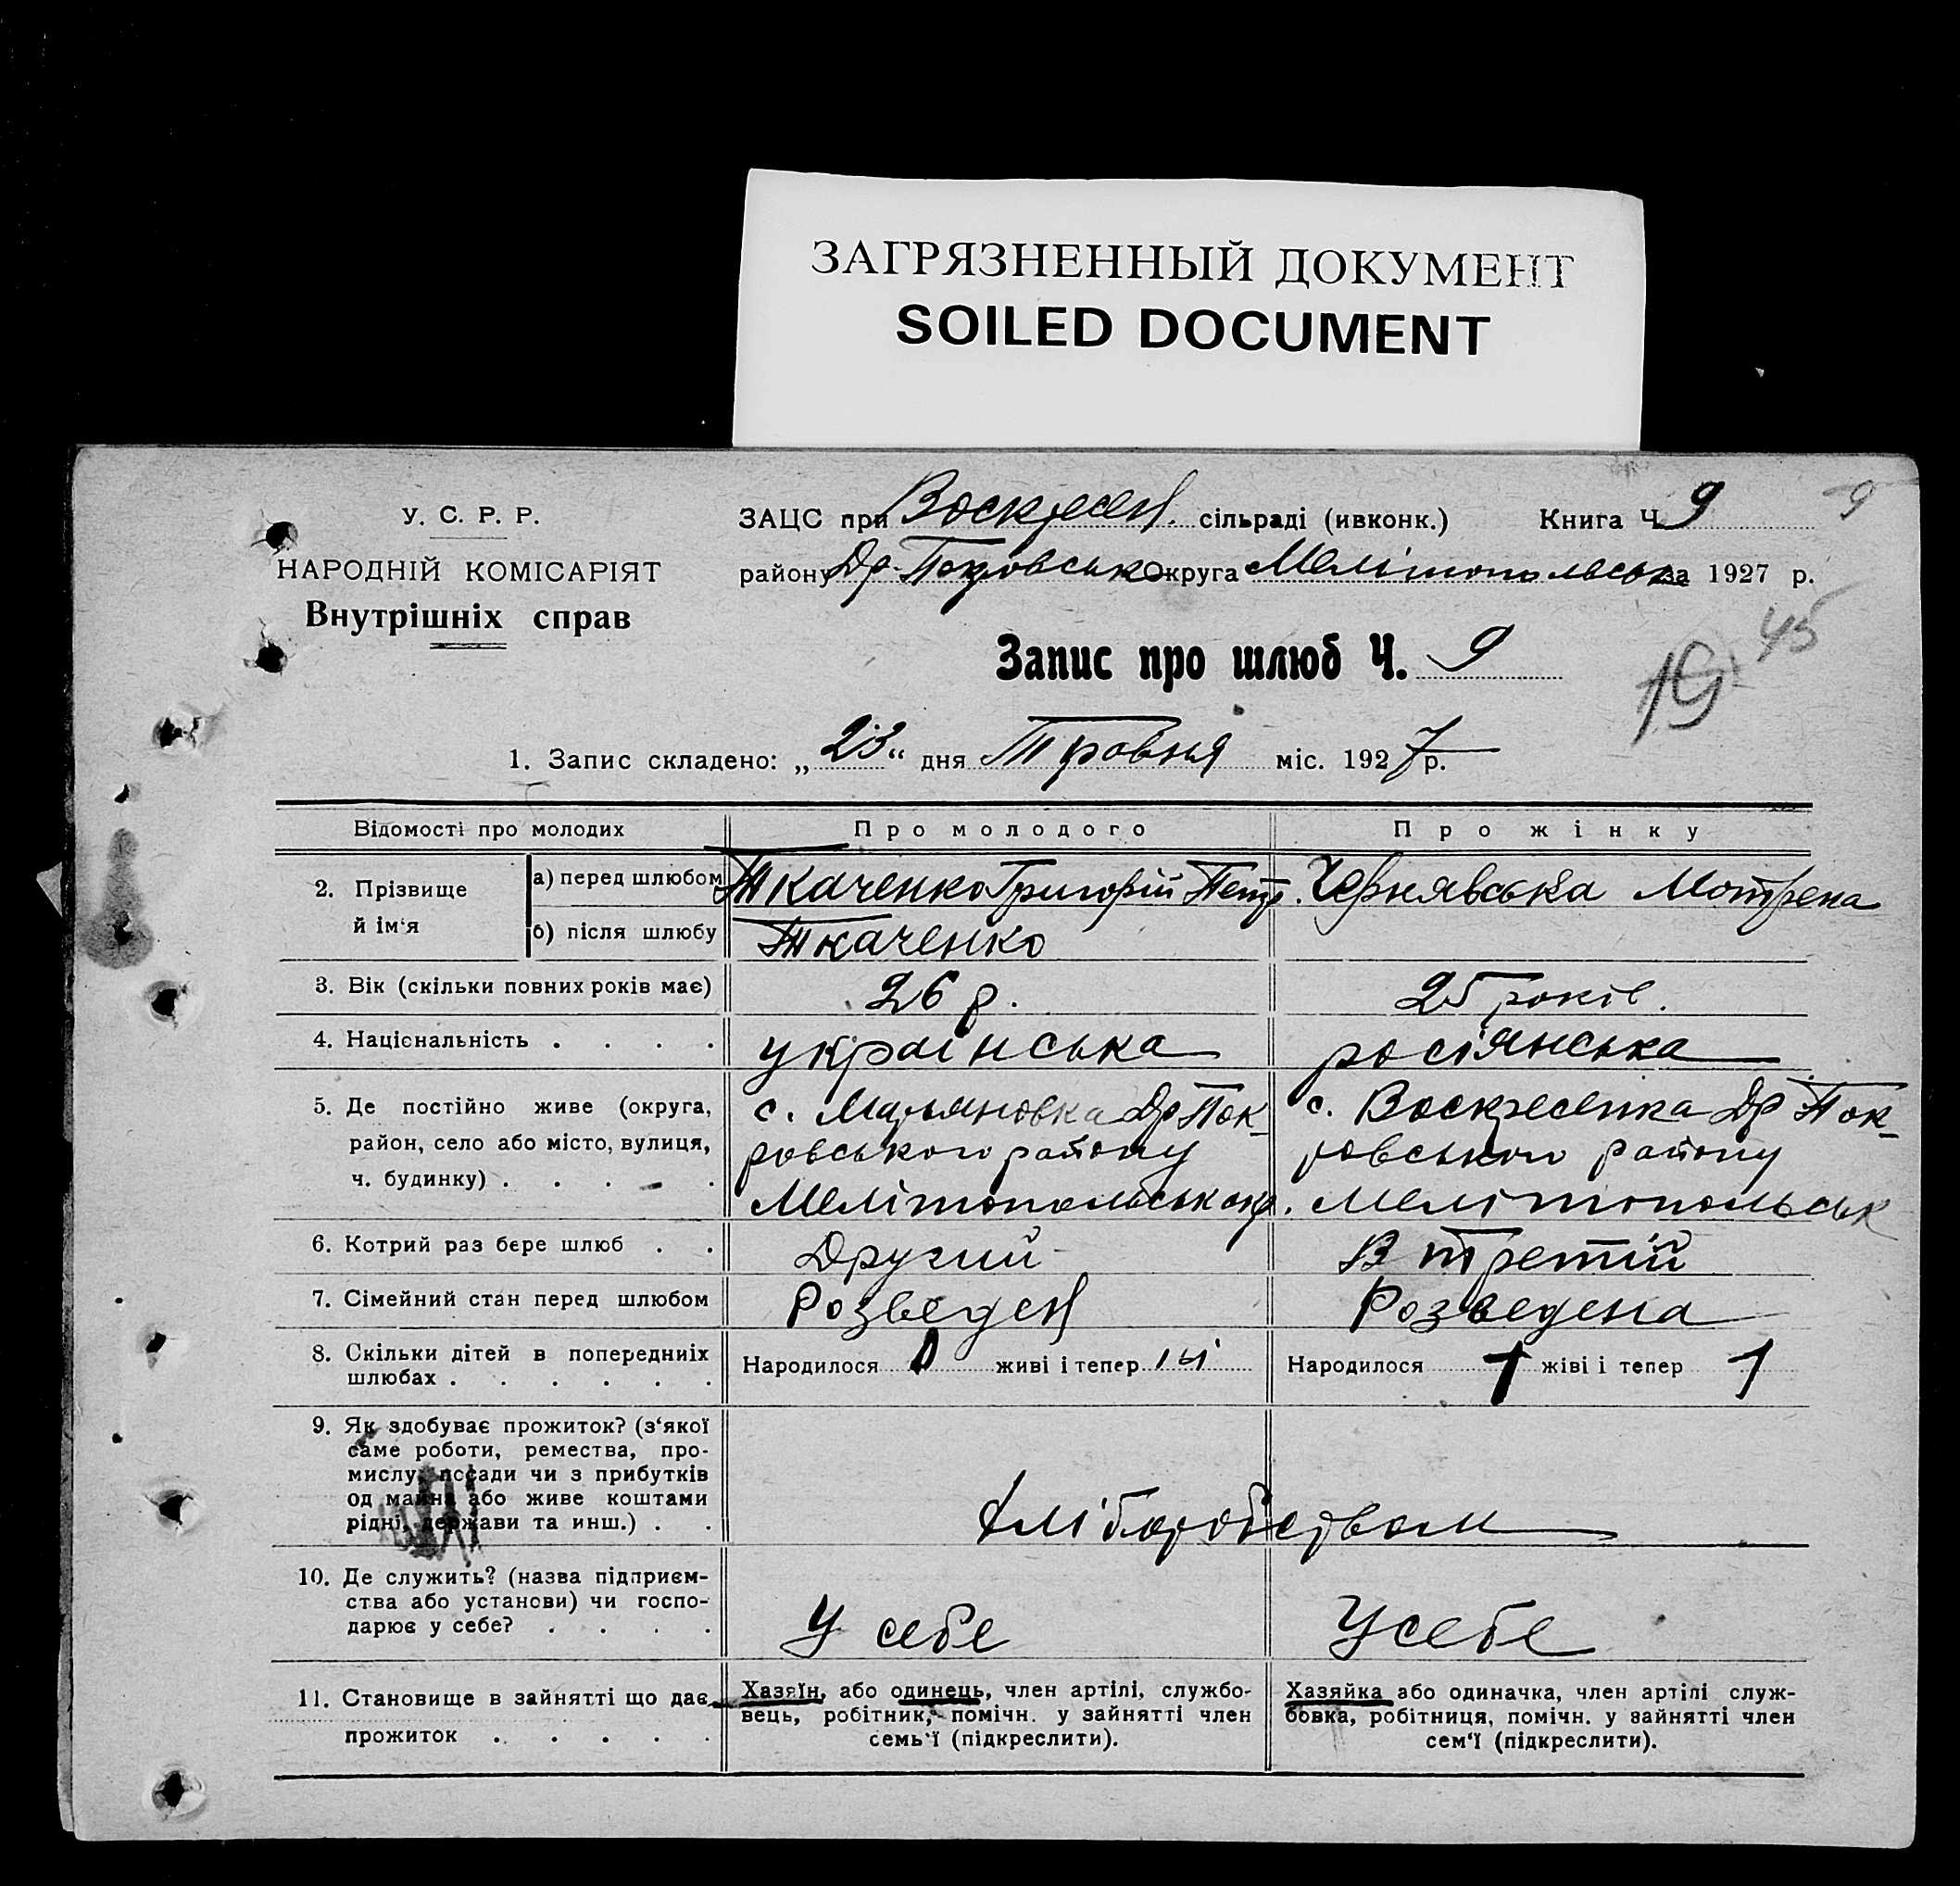 ЗАГРЯЗНЕННЫЙ ДОКУМЕНТ
SOILED DOCUMENT
У. С. Р. Р.
НАРОДНІЙ КОМІСАРІЯТ
Внутрішніх справ
ЗАЦС при Воскресен. сільраді (ивконк.) Книга Ч. 9 9
району Др-Покровськ Округа Мелітопольськ за 1927 р.
45
Запис про шлюб Ч. 9
19
1. Запис складено: „23“ дня Тровня міс. 1927 р.
Відомості про молодих Про молодого Про жінку
2. Прізвище й ім‘я
а) перед шлюбом Ткаченко Григорій Петр. Чернявська Мотрена
б) після шлюбу Ткаченко
3. Вік (скільки повних років має) 26 р. 25 років.
4. Національність . . . . українська росіянська
5. Де постійно живе (округа, с. Мар'яновка Др Пок- с. Воскресенка Др Пок-
район, село або місто, вулиця, ровського району ровського району
ч. будинку) . . . . . Мелітопольськ окр. Мелітопольськ
6. Котрий раз бере шлюб . . Другий В третій
7. Сімейний стан перед шлюбом Розведен Розведена
8. Скільки дітей в попередниіх Народилося живі і тепер Народилося 1 жіві і тепер 1
шлюбах . . . . . .
9. Як здобуває прожиток? (з‘якої
саме роботи, ремества, про-
мислу, посади чи з прибутків
од майна або живе коштами
рідні, держави та инш.) . . Хліборобством
10. Де служить? (назва підприєм-
ства або установи) чи госпо-
дарює у себе? . . . . У себе У себе
11. Становище в зайнятті що дає
прожиток . . . . .
Хазяїн, або одинець, член артілі, службо-
вець, робітник, помічн. у зайнятті член
семь‘ї (підкреслити).
Хазяйка або одиначка, член артілі служ-
бовка, робітниця, помічн. у зайнятті член
сем‘ї (підкреслити).